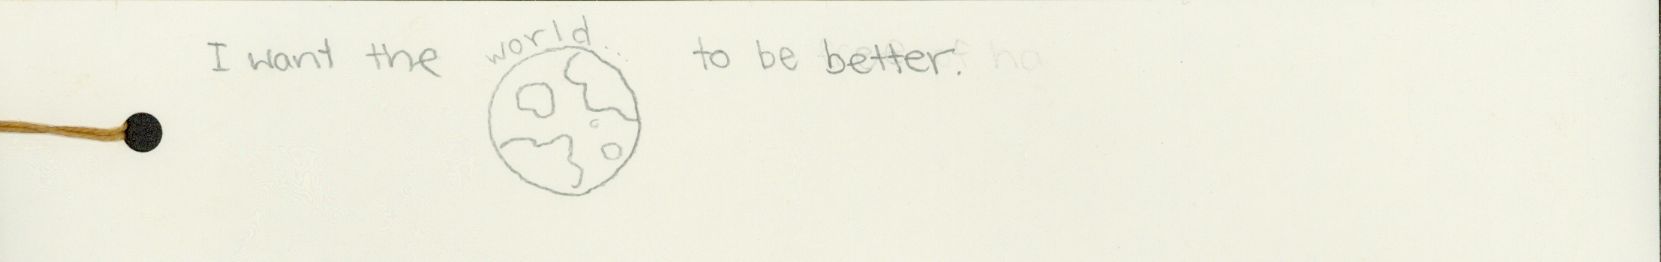 I want the world to be better.